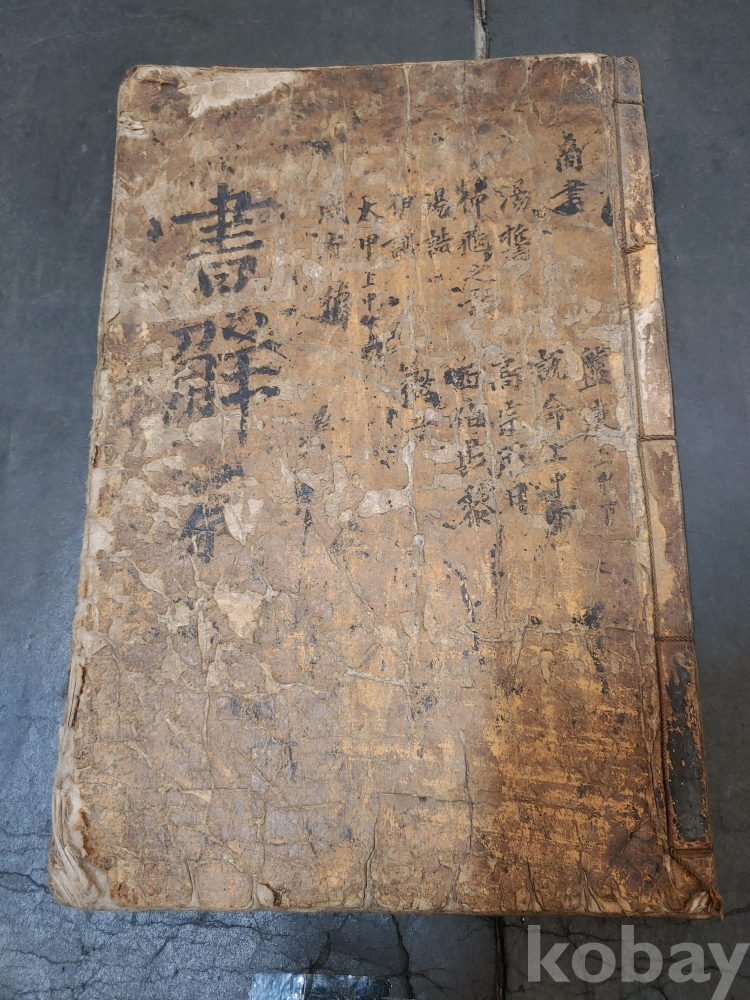 商書
湯誓
仲虺之誥
湯誥
伊訓
太甲上中下
咸有一德
盤庚上中下
說命上中下
高宗肜日
西伯戡黎
微子
書解
kobay